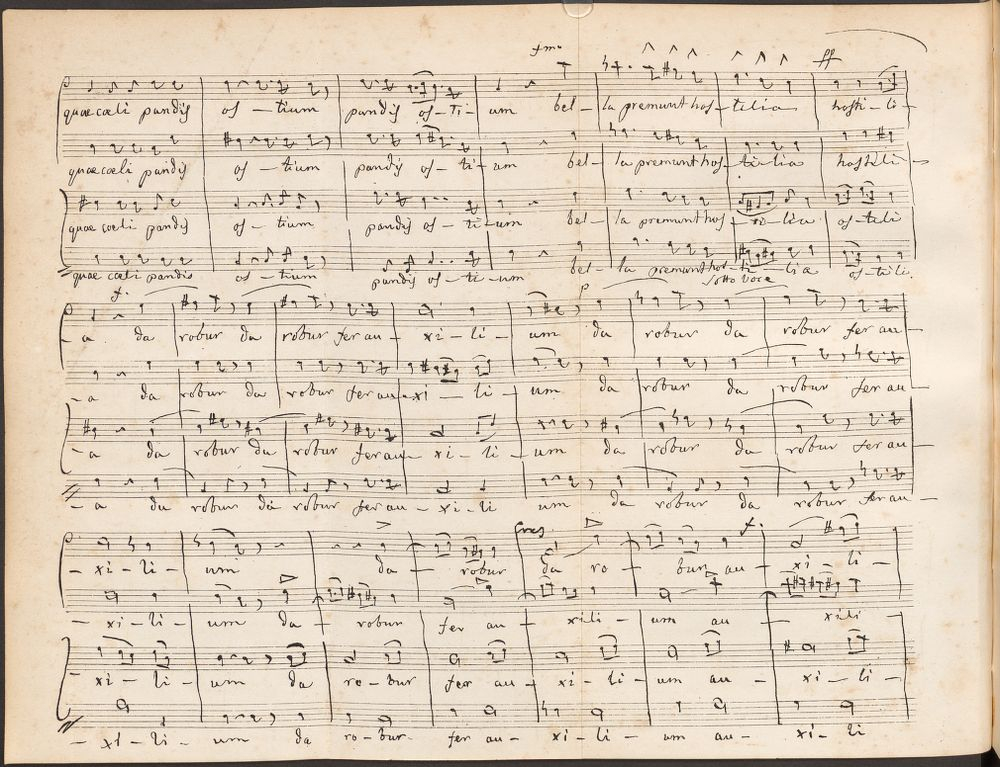 fmo ff
quae coeli pandis os – tium pandis os – ti – um bel – la premunt hos – tilia hosti – li –
quae coeli pandis os – tium pandis os – ti – um bel – la premunt hos – ti – lia hostili –
quae coeli pandis os – tium pandis os – ti – um bel – la premunt hos – ti – lia os – tili
quae coeli pandis os – tium pandis os – ti – um bel – la premunt hos – ti – lia os – tili
f. p sotto voce
– a da robur da robur fer au – xi – li – um da robur da robur fer au –
– a da robur da robur fer au – xi – li – um da robur da robur fer au –
– a da robur da robur fer au – xi – li – um da robur da robur fer au –
– a da robur da robur fer au – xi – li um da robur da robur fer au –
Cres f.
– xi – li – um da – robur da ro – bur au – xi – li
– xi – li – um da – robur fer au – xili – um au – xili –
xi – li – um da ro – bur fer au – xi – li – um au – xi – li –
– xi – li – um da ro – bur fer au – xi – li – um au – xi – li